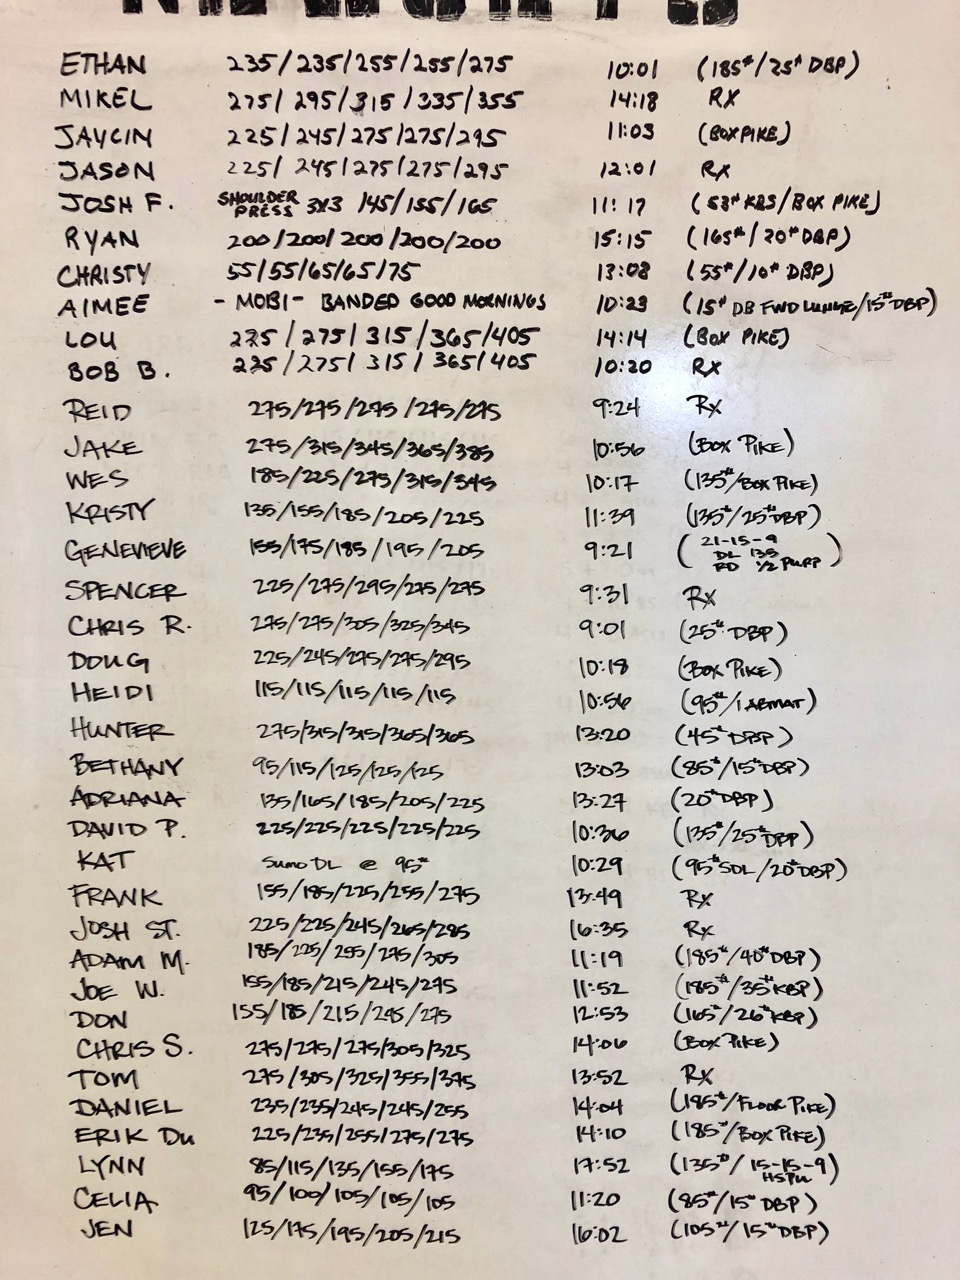 ETHAN 235/235/255/255/275 10:01 (185#/25# DBP)
MIKEL 275/295/315/335/355 14:18 RX
JAYCIN 225/245/275/275/295 11:03 (BOX PIKE)
JASON 225/245/275/275/295 12:01 RX
JOSH F. SHOULDER PRESS 3x3 145/155/165 11:17 (53# KBS/BOX PIKE)
RYAN 200/200/200/200/200 15:15 (165#/20# DBP)
CHRISTY 55/55/65/65/75 13:08 (55#/10# DBP)
AIMEE - MOBI - BANDED GOOD MORNINGS 10:23 (15# DB FWD LUNGE/15# DBP)
LOU 225/275/315/365/405 14:14 (BOX PIKE)
BOB B. 225/275/315/365/405 10:20 RX
REID 275/275/275/275/275 9:24 Rx
JAKE 275/315/345/365/385 10:56 (BOX PIKE)
WES 185/225/275/315/345 10:17 (135#/BOX PIKE)
KRISTY 135/155/185/205/225 11:39 (135#/25# DBP)
GENEVIEVE 155/175/185/195/205 9:21 (21-15-9
DL 135
RD 1/2 PURP)
SPENCER 225/275/295/275/275 9:31 Rx
CHRIS R. 275/275/305/325/345 9:01 (25# DBP)
DOUG 225/245/275/275/295 10:18 (BOX PIKE)
HEIDI 115/115/115/115/115 10:56 (95#/1 ABMAT)
HUNTER 275/315/315/365/365 13:20 (45# DBP)
BETHANY 95/115/125/125/125 13:03 (85#/15# DBP)
ADRIANA 135/165/185/205/225 13:27 (20# DBP)
DAVID P. 225/225/225/225/225 10:36 (135#/25# DBP)
KAT SUMO DL @ 95# 10:29 (95# SDL/20# DBP)
FRANK 155/185/225/255/275 13:49 Rx
JOSH ST. 225/225/245/265/285 16:35 Rx
ADAM M. 185/225/255/275/305 11:19 (185#/40# DBP)
JOE W. 155/185/215/245/275 11:52 (185#/35# KBP)
DON 155/185/215/245/275 12:53 (165#/26# KBP)
CHRIS S. 275/275/275/305/325 14:06 (BOX PIKE)
TOM 275/305/325/355/375 13:52 Rx
DANIEL 235/235/245/245/255 14:04 (185#/FLOOR PIKE)
ERIK DU 225/235/255/275/275 14:10 (185#/BOX PIKE)
LYNN 85/115/135/155/175 17:52 (135#/15-15-9
HSPU)
CELIA 95/100/105/105/105 11:20 (85#/15# DBP)
JEN 125/175/195/205/215 16:02 (105#/15# DBP)